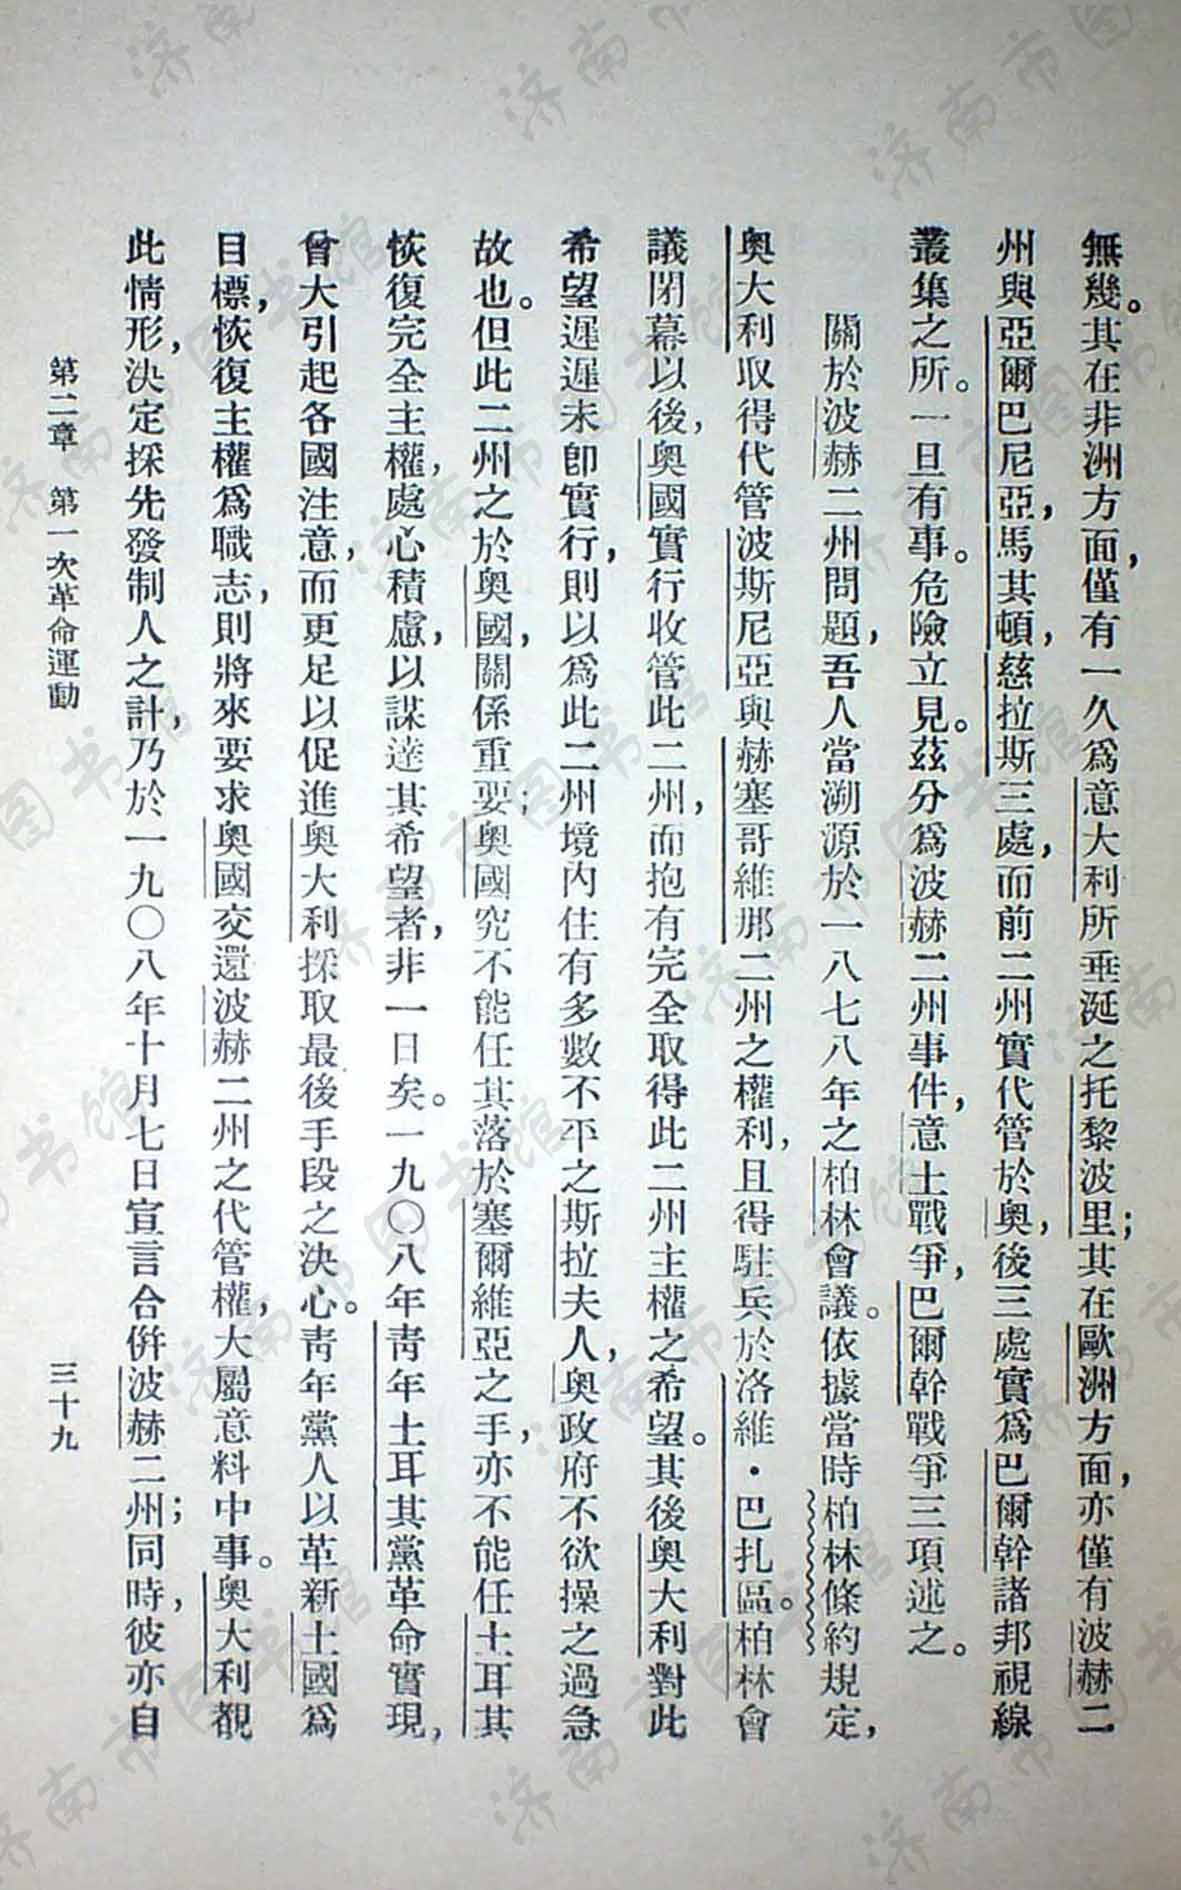 無幾。其在非洲方面，僅有一久爲意大利所垂涎之托黎波里；其在歐洲方面，亦僅有波赫二
州與亞爾巴尼亞，馬其頓，慈拉斯三處，而前二州實代管於奧，後三處實爲巴爾幹諸邦視線
叢集之所。一旦有事。危險立見。茲分爲波赫二州事件，意土戰爭，巴爾幹戰爭三項述之。
關於波赫二州問題，吾人當溯源於一八七八年之柏林會議。依據當時柏林條約規定，
奧大利取得代管波斯尼亞與赫塞哥維那二州之權利，且得駐兵於洛維·巴扎區。柏林會
議閉幕以後，奧國實行收管此二州，而抱有完全取得此二州主權之希望。其後奧大利對此
希望遲遲未卽實行，則以爲此二州境內住有多數不平之斯拉夫人，奧政府不欲操之過急
故也。但此二州之於奧國，關係重要；奧國究不能任其落於塞爾維亞之手，亦不能任土耳其
恢復完全主權，處心積慮，以謀達其希望者，非一日矣。一九〇八年靑年土耳其黨革命實現，
曾大引起各國注意，而更足以促進奧大利採取最後手段之決心。靑年黨人以革新土國爲
目標，恢復主權爲職志，則將來要求奧國交還波赫二州之代管權，大屬意料中事。奧大利覩
此情形，決定採先發制人之計，乃於一九〇八年十月七日宣言合倂波赫二州；同時，彼亦自
第二章 第一次革命運動 三十九
济南市图书馆